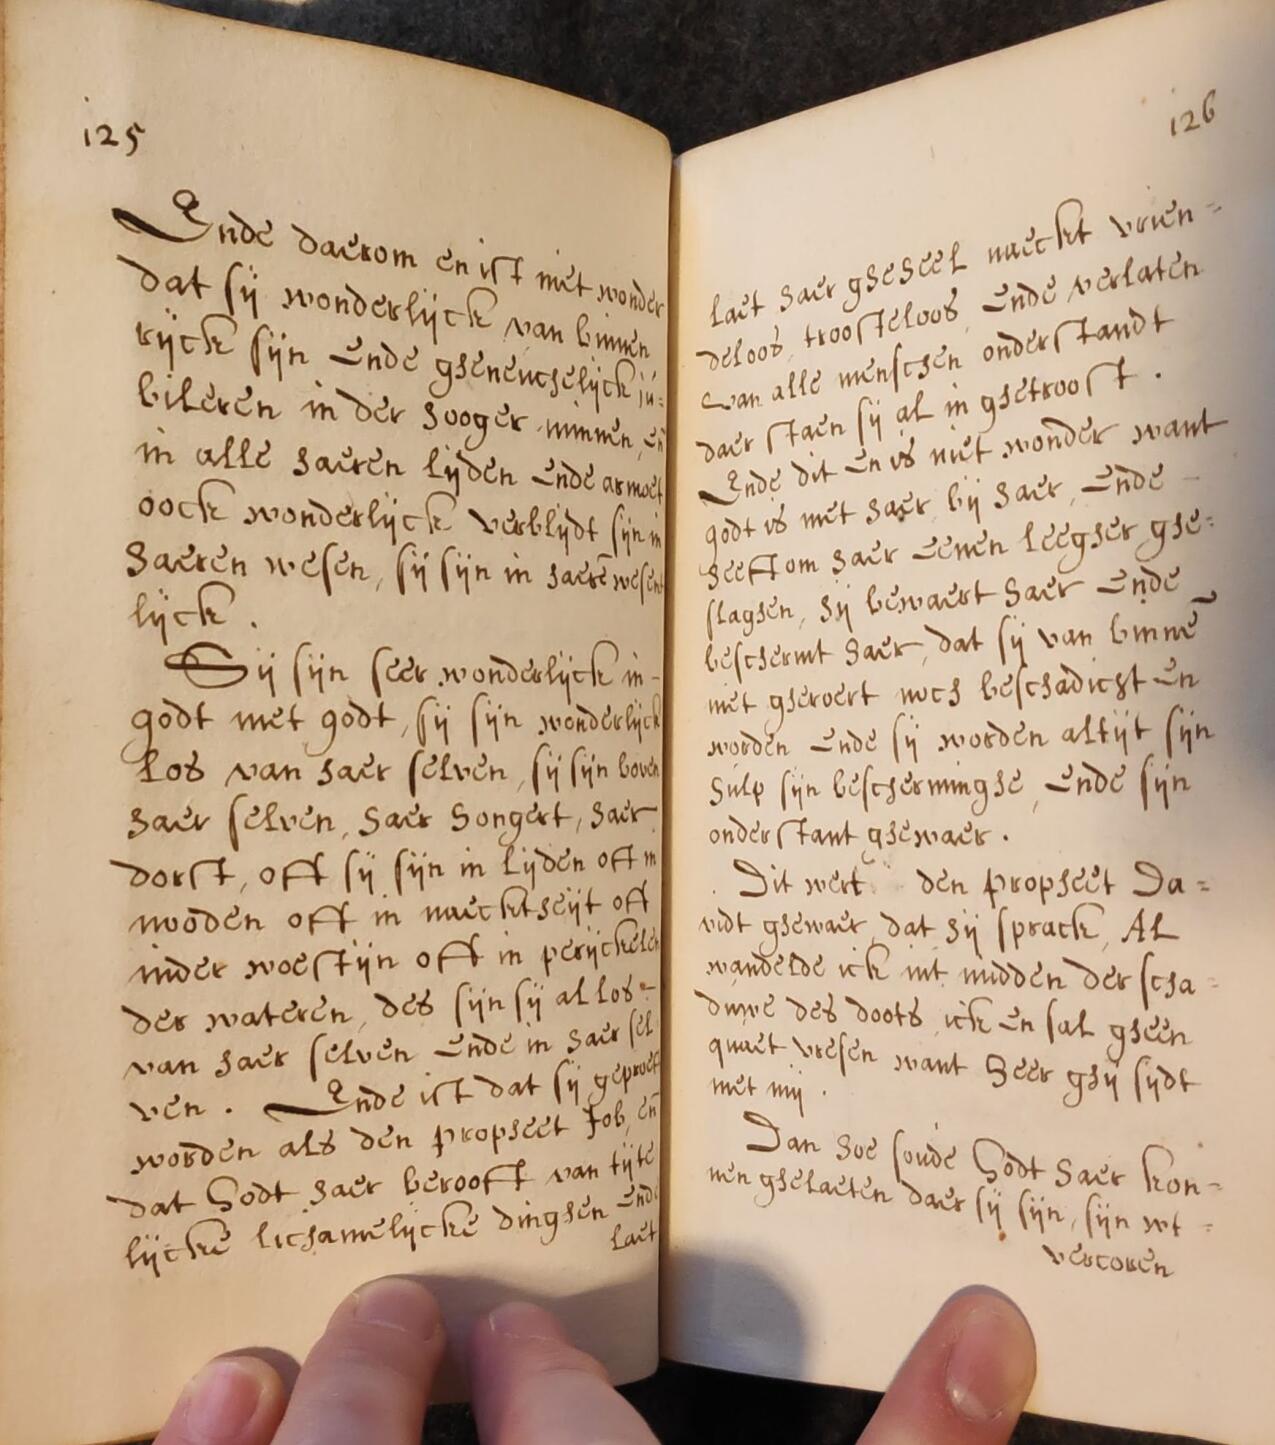 125
Ende daerom en ist niet wonder
dat sij wonderlijck van binnen
rijck sijn ende gheneuchelijck ju=
bileren in der hooger minnen, eñ
in alle haeren lijden ende armoet
oock wonderlijck verblijdt sijn in
haeren wesen, sij sijn in haerē wesent
lijck.
Sij sijn seer wonderlijck in-
godt met godt, sij sijn wonderlijck
los van haer selven, sij sijn boven
haer selven, haer hongert, haer
dorst, oft sij sijn in lijden oft in
nooden oft in naecktheijt oft
inder woestijn oft in perijckelen
der wateren, des sijn sij al los-
van haer selven ende in haer sel
ven. Ende ist dat sij geproeft
worden als den propheet Job, eñ
dat Godt haer berooft van tijte
lijcke lichamelijcke dinghen ende
laet
126
laet haer gheheel naeckt vrien=
deloos, troosteloos ende verlaten
van alle menschen onderstandt
daer staen sij al in ghetroost.
Ende dit en is niet wonder want
godt is met haer bij haer, ende -
heeft om haer eenen leegher ghe=
slaghen, hij bewaert haer ende
beschermt haer, dat sij van binnē
niet gheroert noch beschadicht en
worden ende sij worden altijt sijn
hulp sijn bescherminghe, ende sijn
onderstant ghewaer.
Dit wert den propheet Da=
vidt ghewaer dat hij sprack, Al
wandelde ick int midden der scha=
duwe des doots, ick en sal gheen
quaet vresen want Heer ghij sijdt
met mij.
Dan hoe soude Godt haer kon=
nen ghelaeten daer sij sijn, sijn wt=
vercoren